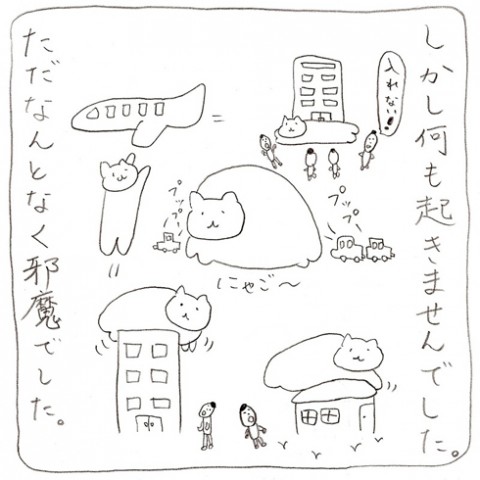 しかし何も起きませんでした。
入れない!
プップー
プップー
にゃご〜
ただなんとなく邪魔でした。